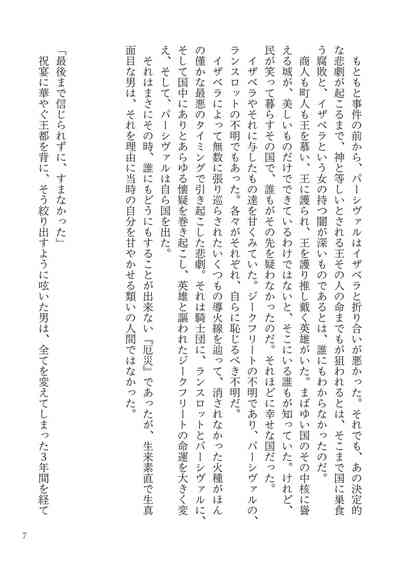 もともと事件の前から、パーシヴァルはイザベラと折り合いが悪かった。それでも、あの決定的
な悲劇が起こるまで、神と等しいとされる王その人の命までもが狙われるとは、そこまで国に巣食
う腐敗と、イザベラという女の持つ闇が深いものであるとは、誰にもわからなかったのだ。
商人も町人も王を慕い、王に護られ、王を護り推し戴く英雄がいた。まばゆい国のその中核に聳
える城が、美しいものだけでできているわけではないと、そこにいる誰もが知っていた。けれど、
民が笑って暮らすその国で、誰もがその先を疑わなかったのだ。それほどに幸せな国だった。
イザベラやそれに与したもの達を甘くみていた。ジークフリートの不明であり、パーシヴァルの、
ランスロットの不明でもあった。各々がそれぞれ、自らに恥じるべき不明だ。
イザベラによって無数に張り巡らされたいくつもの導火線を辿って、消されなかった火種がほん
の僅かな最悪のタイミングで引き起こした悲劇。それは騎士団に、ランスロットとパーシヴァルに、
そして国中にありとあらゆる懐疑を巻き起こし、英雄と謳われたジークフリートの命運を大きく変
え、そして、パーシヴァルは自ら国を出た。
それはまさにその時、誰にもどうにもすることが出来ない『厄災』であったが、生来素直で生真
面目な男は、それを理由に当時の自分を甘やかせる類いの人間ではなかった。
「最後まで信じられずに、すまなかった」
祝宴に華やぐ王都を背に、そう絞り出すように呟いた男は、全てを変えてしまった3年間を経て
7